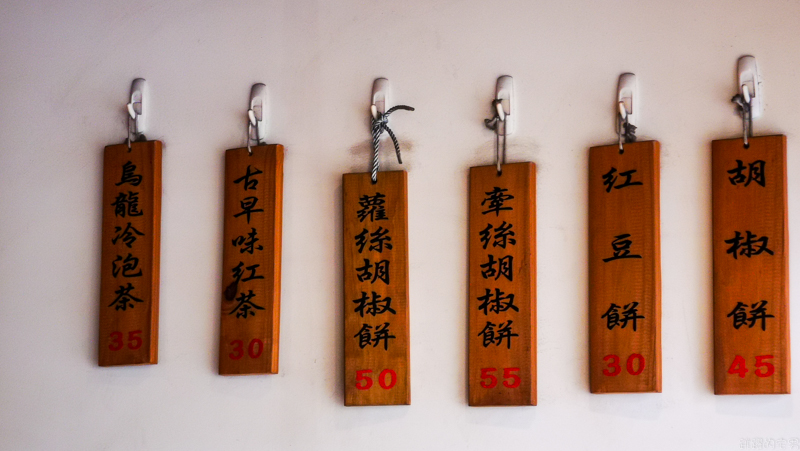 胡椒餅
45
紅豆餅
30
牽絲胡椒餅
55
蘿絲胡椒餅
50
古早味紅茶
30
烏龍冷泡茶
35